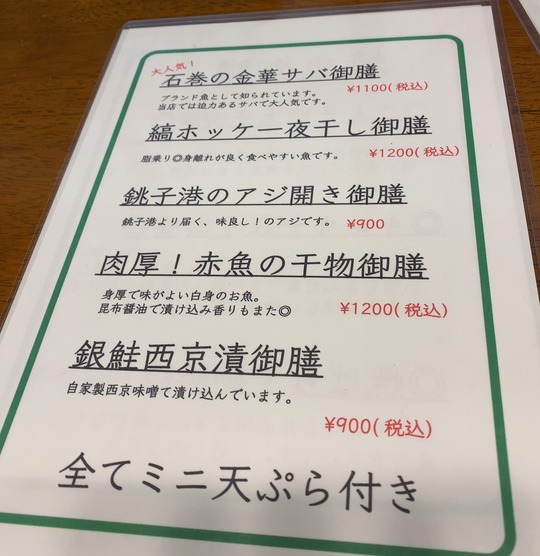 大人気！
石巻の金華サバ御膳
¥1100(税込)
ブランド魚として知られています。
当店では迫力あるサバで大人気です。
縞ホッケ一夜干し御膳
¥1200(税込)
脂乗り◎身離れが良く食べやすい魚です。
銚子港のアジ開き御膳
銚子港より届く、味良し！のアジです。 ¥900
肉厚！赤魚の干物御膳
身厚で味がよい白身のお魚。
昆布醤油で漬け込み香りもまた◎ ¥1200(税込)
銀鮭西京漬御膳
自家製西京味噌で漬け込んでいます。
¥900(税込)
全てミニ天ぷら付き